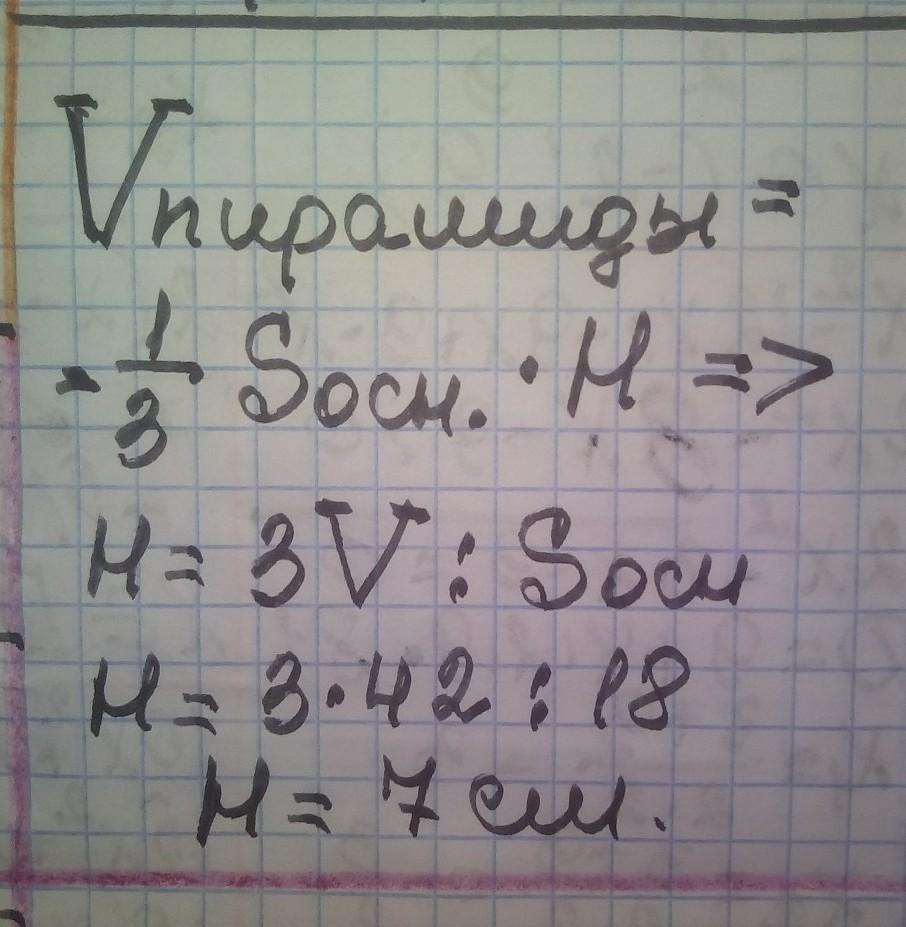 Vпирамиды =
= 1/3 Sосн. · H =>
H = 3V : Sосн
H = 3·42 : 18
H = 7 см.